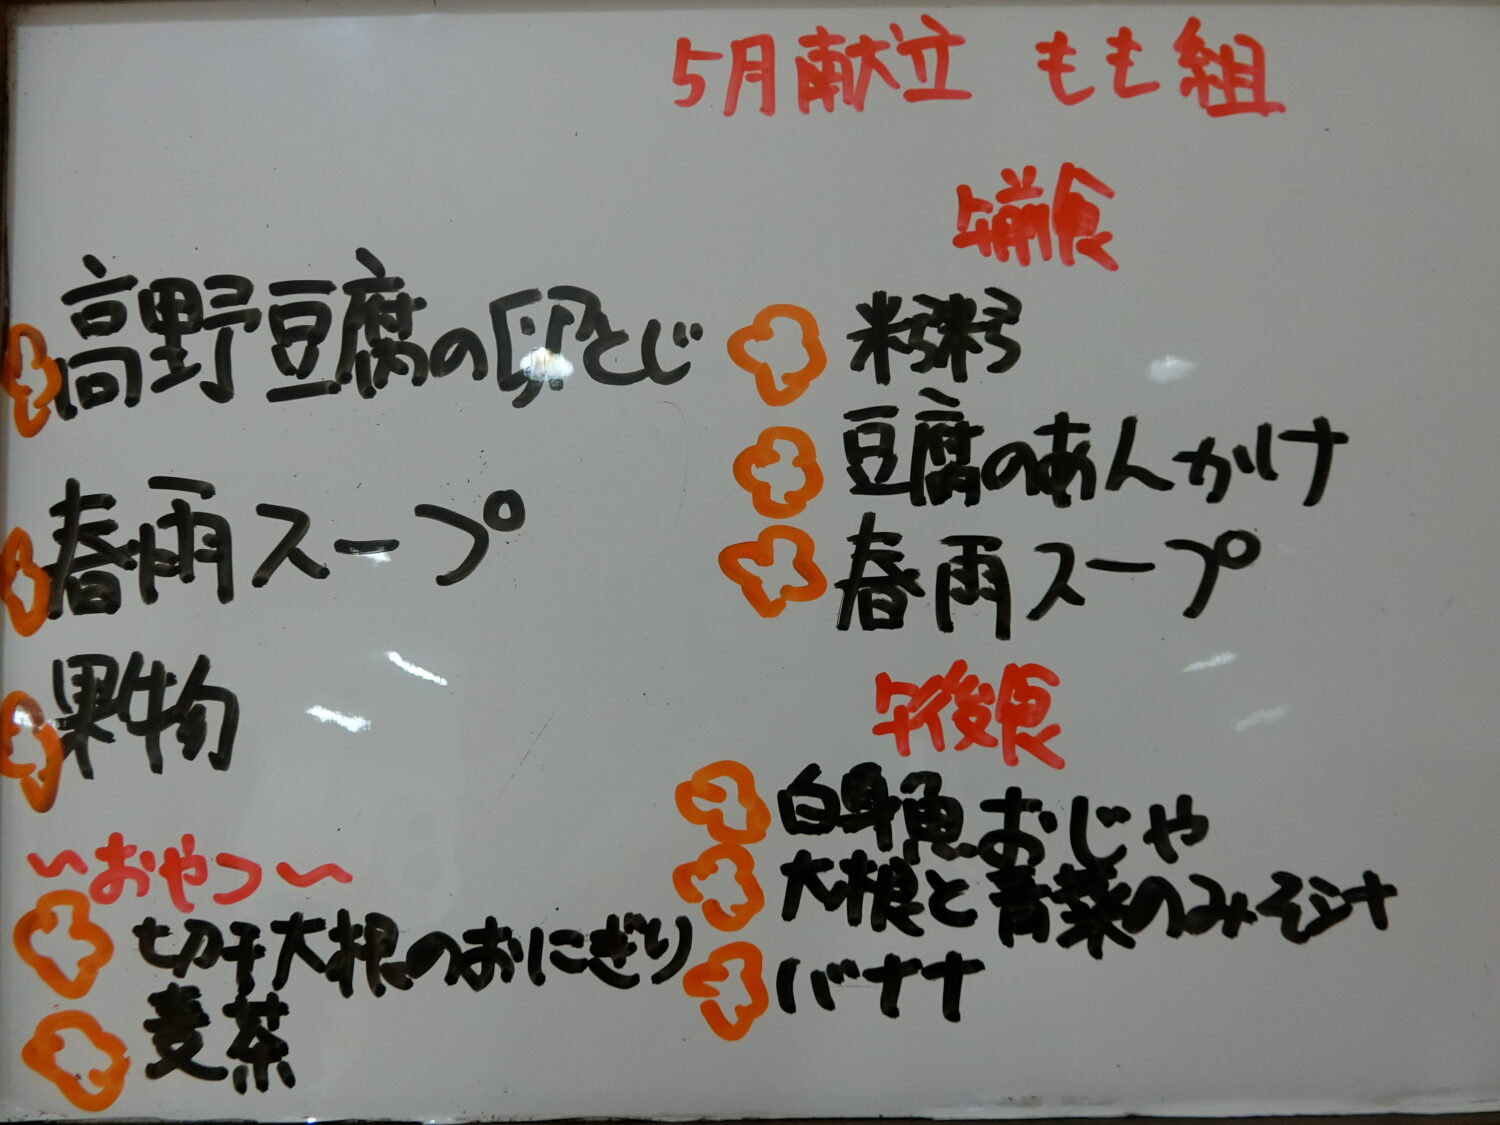 5月献立 もも組
高野豆腐の卵とじ
春雨スープ
果物
〜おやつ〜
切干大根のおにぎり
麦茶
午前食
粥
豆腐のあんかけ
春雨スープ
午後食
白身魚おじや
大根と青菜のみそ汁
バナナ